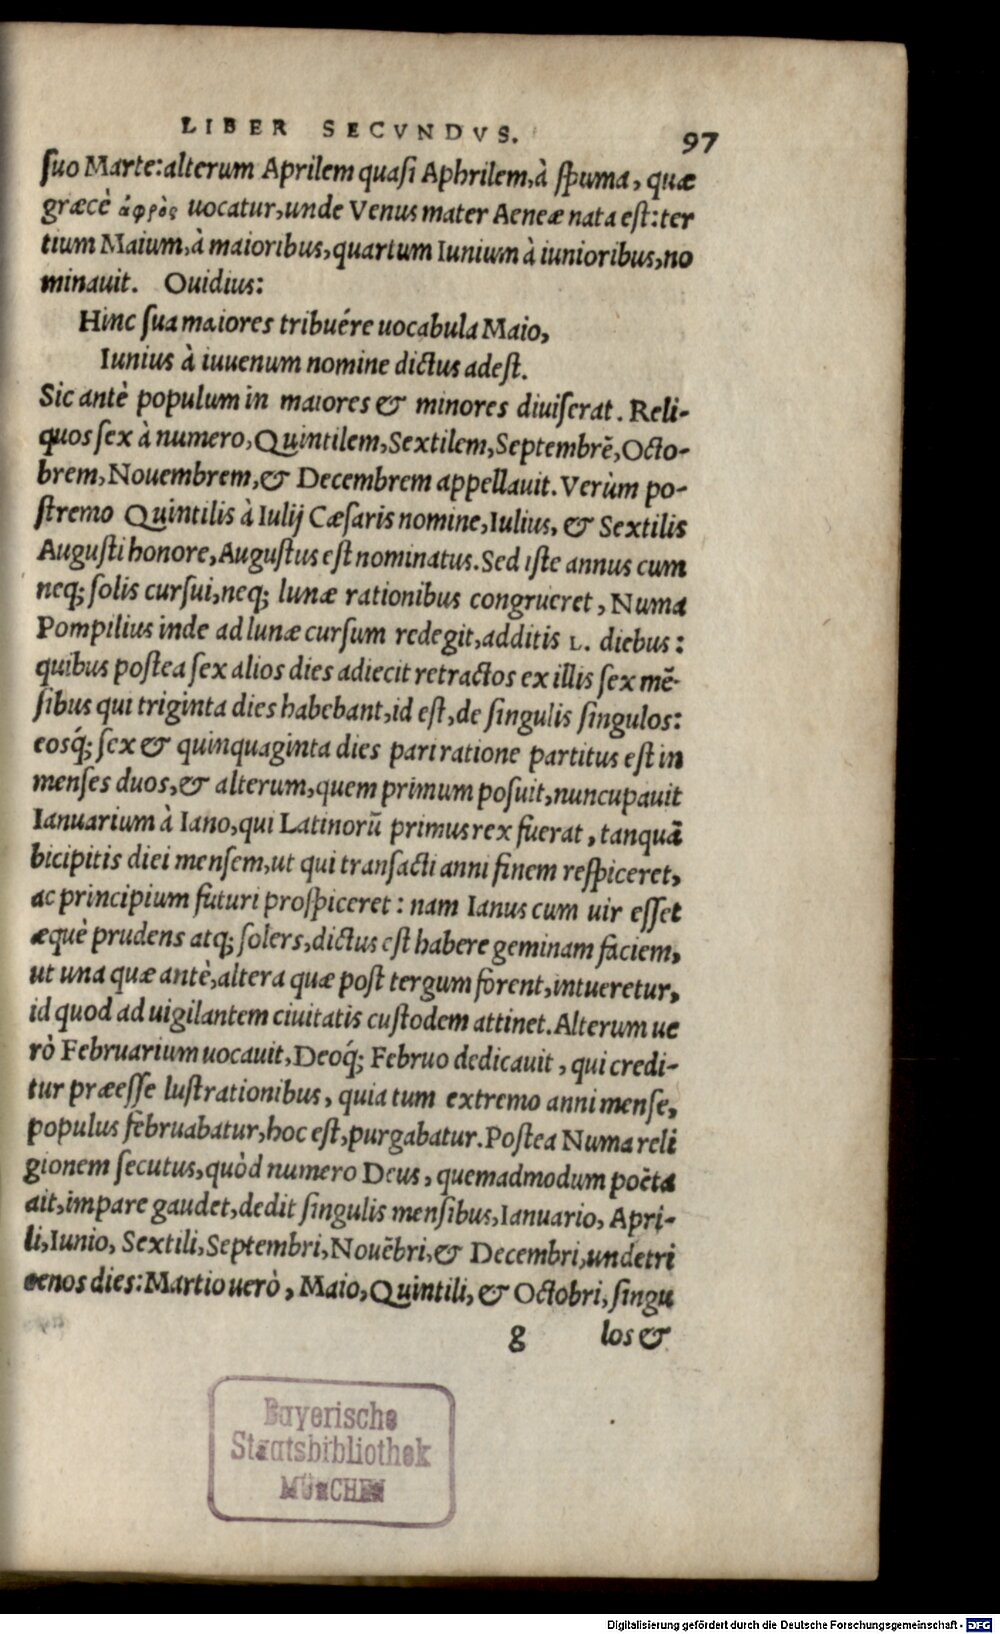 LIBER SECVNDVS. 97
ſuo Marte:alterum Aprilem quaſi Aphrilem,à ſpuma, quæ
græcè ἀφρὸς uocatur,unde Venus mater Aeneæ nata eſt:ter
tium Maium,à maioribus,quartum Iunium à iunioribus,no
minauit. Ouidius:
Hinc ſua maiores tribuére uocabula Maio,
Iunius à iuuenum nomine dictus adeſt.
Sic antè populum in maiores & minores diuiſerat. Reli-
quos ſex à numero,Quintilem,Sextilem,Septembrē,Octo-
brem,Nouembrem,& Decembrem appellauit.Verùm po-
ſtremo Quintilis à Iulij Cæſaris nomine,Iulius, & Sextilis
Auguſti honore,Auguſtus eſt nominatus.Sed iſte annus cum
neq; ſolis curſui,neq; lunæ rationibus congrueret, Numa
Pompilius inde ad lunæ curſum redegit,additis L. diebus:
quibus poſtea ſex alios dies adiecit retractos ex illis ſex mē-
ſibus qui triginta dies habebant,id eſt,de ſingulis ſingulos:
eosq́; ſex & quinquaginta dies pari ratione partitus eſt in
menſes duos,& alterum,quem primum poſuit,nuncupauit
Ianuarium à Iano,qui Latinorū primus rex fuerat, tanquā
bicipitis diei menſem,ut qui tranſacti anni finem reſpiceret,
ac principium futuri proſpiceret: nam Ianus cum uir eſſet
æquè prudens atq; ſolers,dictus eſt habere geminam faciem,
ut una quæ antè,altera quæ poſt tergum forent,intueretur,
id quod ad uigilantem ciuitatis cuſtodem attinet.Alterum ue
rò Februarium uocauit,Deoq́; Februo dedicauit, qui credi-
tur præeſſe luſtrationibus, quia tum extremo anni menſe,
populus februabatur,hoc eſt,purgabatur.Poſtea Numa reli
gionem ſecutus,quòd numero Deus, quemadmodum poëta
ait,impare gaudet,dedit ſingulis menſibus,Ianuario, Apri-
li,Iunio, Sextili,Septembri,Nouēbri,& Decembri,undetri
cenos dies:Martio uerò, Maio,Quintili, & Octobri,ſingu
g los &
Bayerische
Staatsbibliothek
MÜNCHEN
Digitalisierung gefördert durch die Deutsche Forschungsgemeinschaft - DFG